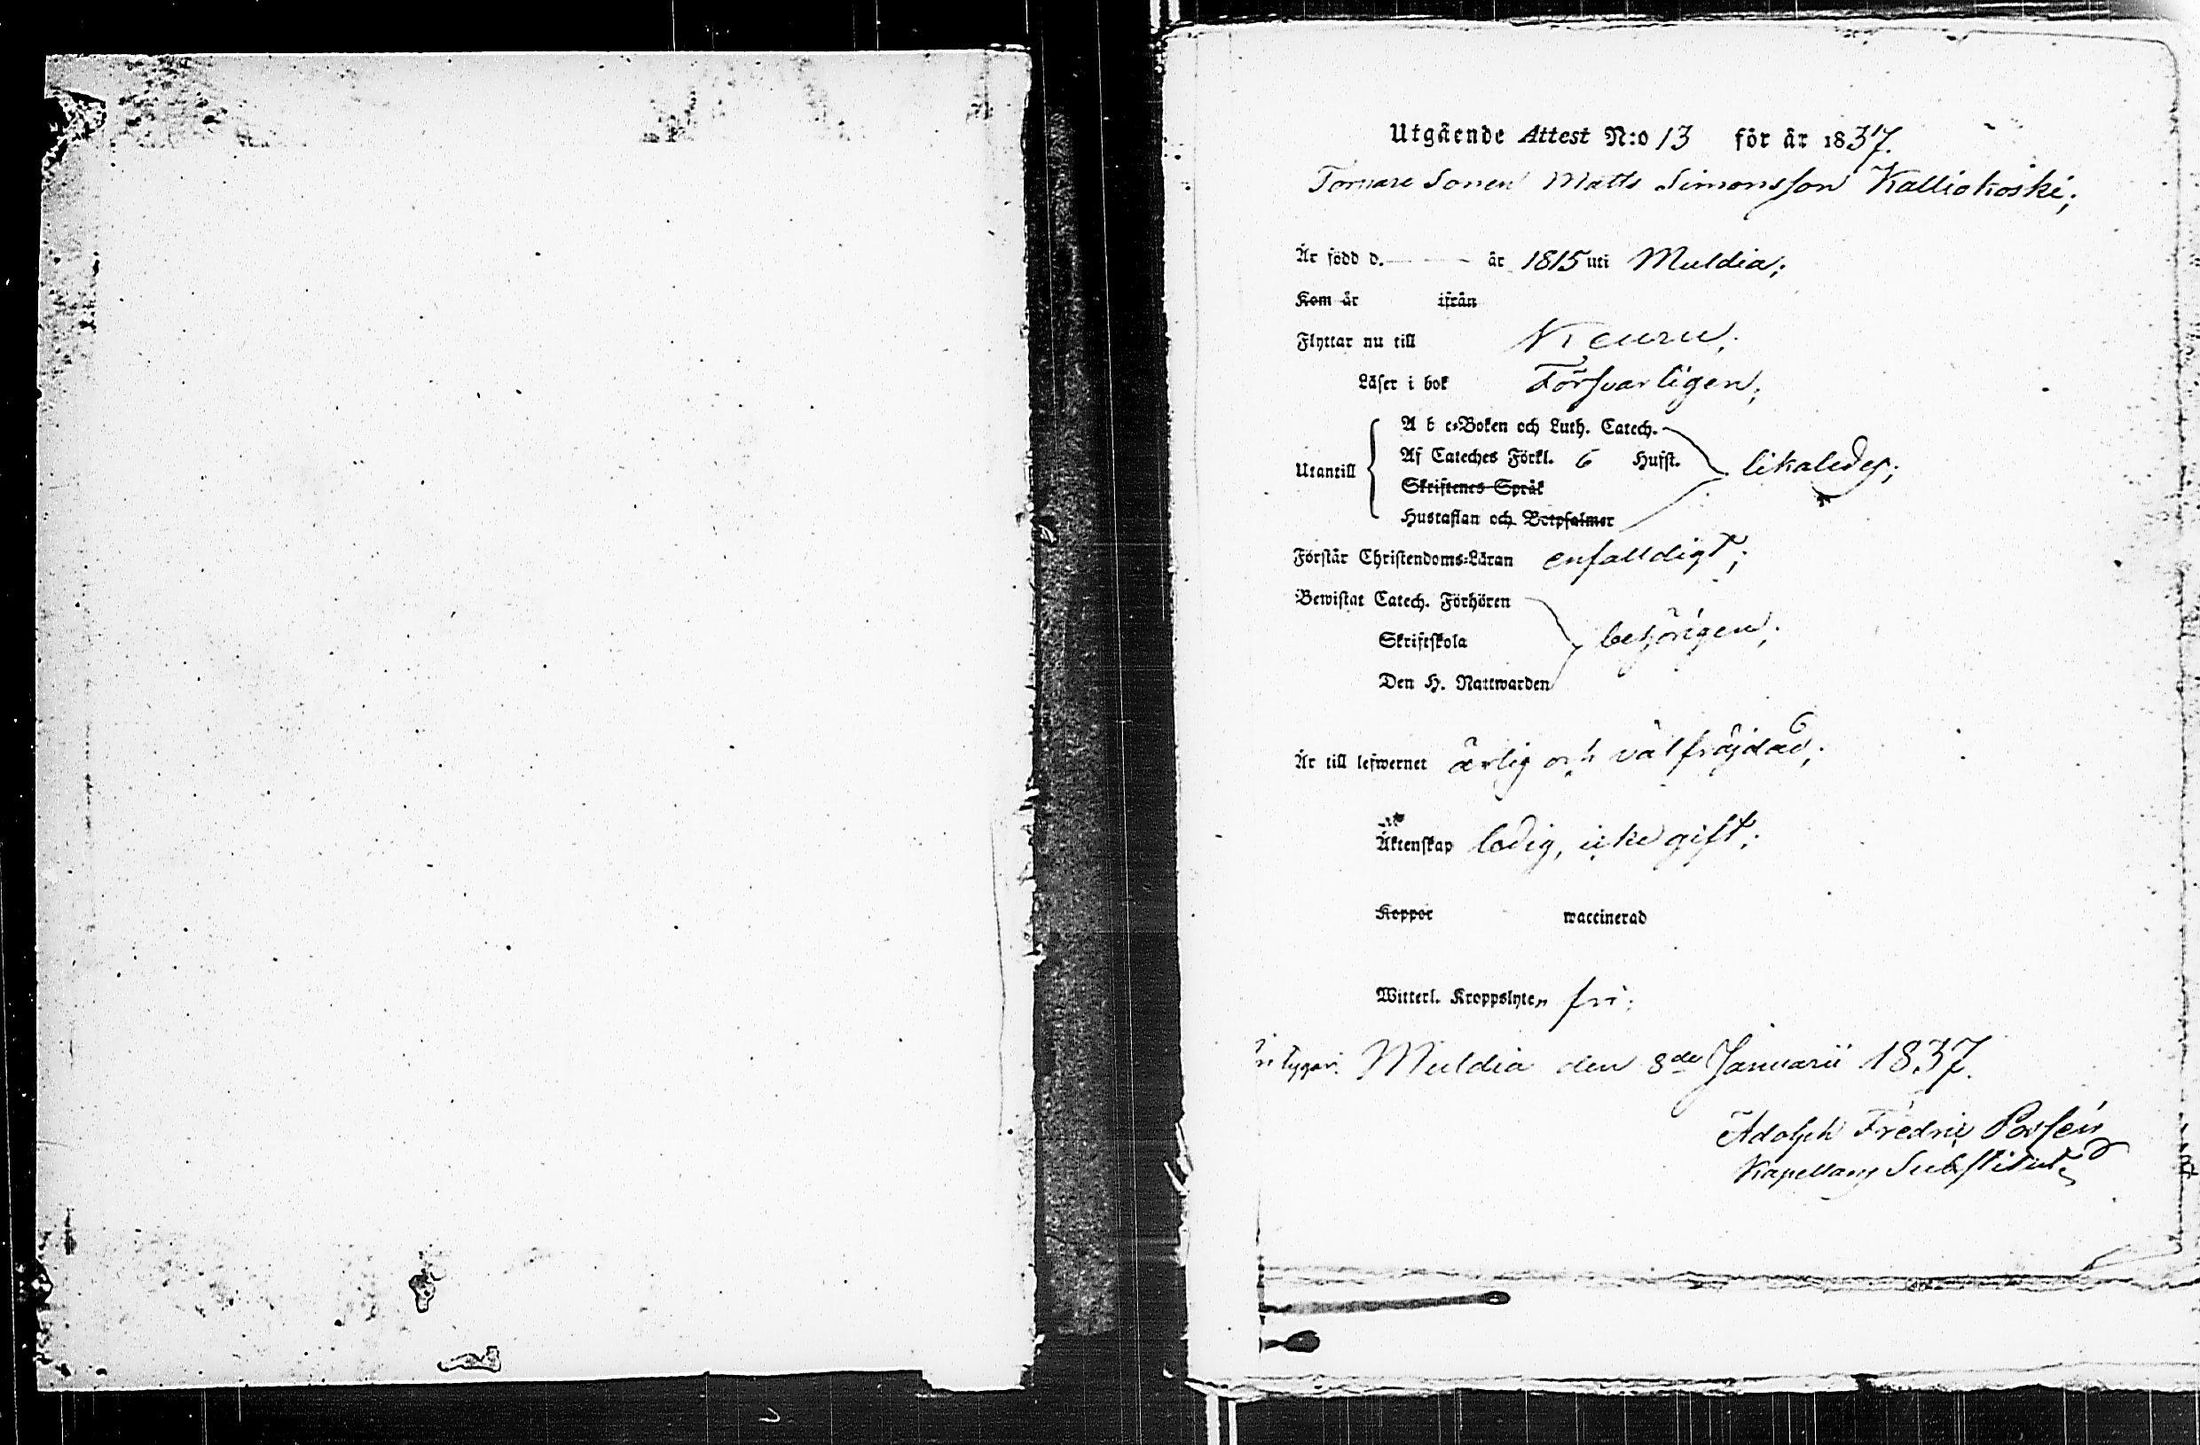 Utgående Attest N:o 13 för år 1837.
Torpare Sonen Matts Simonsson Kalliokoski;
Är född d. år 1815 uti Muldia;
Kom år ifrån
Flyttar nu till Keuru;
Läser i bok Försvarligen;
A b c-Boken och Luth. Catech.
Utantill Af Cateches Förkl. 6 Hufst. likaledes;
Skriftenes Språk
Hustaflan och Botpsalmer
Förstår Christendoms-Läran enfalldigt;
Bewistat Catech. Förhören
Skriftskola behörigen;
Den H. Nattwarden
Är till lefwernet ärlig och välfräjdad;
Äktenskap ledig, icke gift;
Koppor waccinerad
Witterl. Kroppslyten fri;
Muldia den 8de Januarii 1837.
Adolph Fredric
Kapellans Substitut